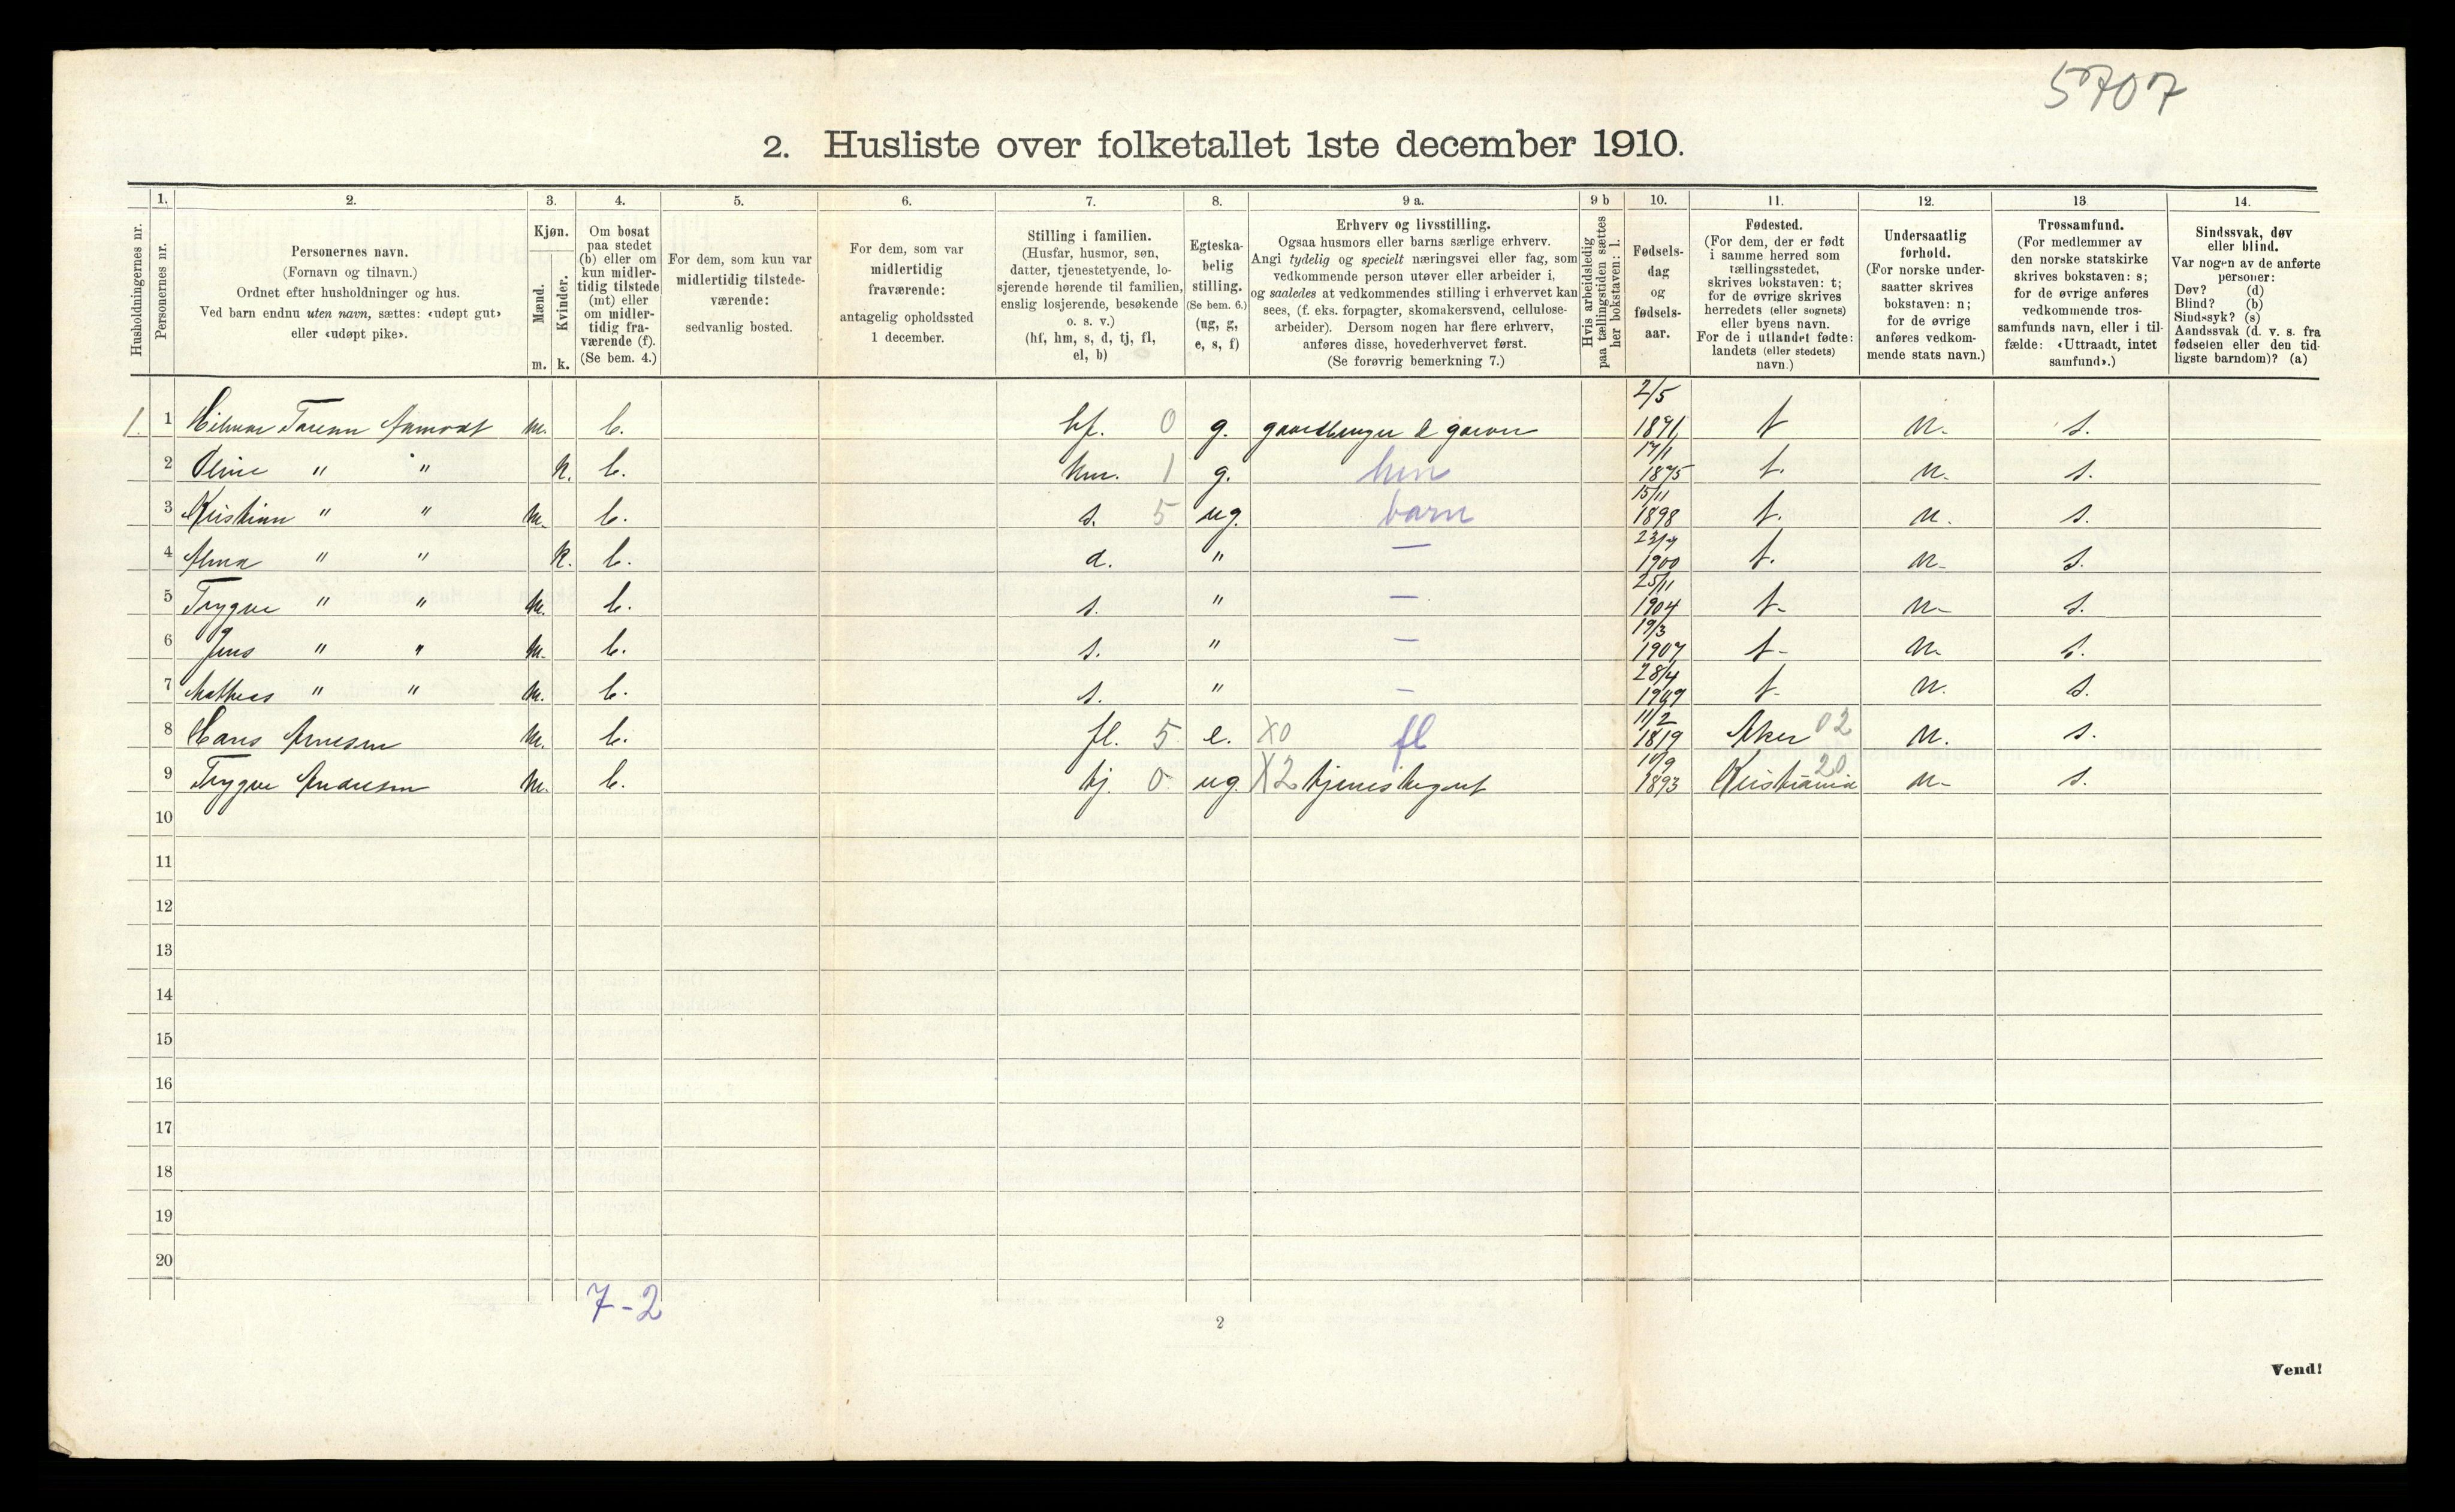 5707
2. Husliste over folketallet 1ste december 1910.
Husholdningernes nr.
1.
Personernes nr.
2.
Personernes navn.
(Fornavn og tilnavn.)
Ordnet efter husholdninger og hus.
Ved barn endnu uten navn, sættes: «udøpt gut»
eller «udøpt pike».
3.
Kjøn.
Mænd.
Kvinder.
m. k.
4.
Om bosat
paa stedet
(b) eller om
kun midler-
tidig tilstede
(mt) eller
om midler-
tidig fra-
værende (f).
(Se bem. 4.)
5.
For dem, som kun var
midlertidig tilstede-
værende:
sedvanlig bosted.
6.
For dem, som var
midlertidig
fraværende:
antagelig opholdssted
1 december.
7.
Stilling i familien.
(Husfar, husmor, søn,
datter, tjenestetyende, lo-
sjerende hørende til familien,
enslig losjerende, besøkende
o. s. v.)
(hf, hm, s, d, tj, fl,
el, b)
8.
Egteska-
belig
stilling.
(Se bem. 6.)
(ug, g,
e, s, f)
9 a.
Erhverv og livsstilling.
Ogsaa husmors eller barns særlige erhverv.
Angi tydelig og specielt næringsvei eller fag, som
vedkommende person utøver eller arbeider i,
og saaledes at vedkommendes stilling i erhvervet kan
sees, (f. eks. forpagter, skomakersvend, cellulose-
arbeider). Dersom nogen har flere erhverv,
anføres disse, hovederhvervet først.
(Se forøvrig bemerkning 7.)
9 b
Hvis arbeidsledig
paa tællingstiden sættes
her bokstaven: l.
10.
Fødsels-
dag
og
fødsels-
aar.
11.
Fødested.
(For dem, der er født
i samme herred som
tællingsstedet,
skrives bokstaven: t;
for de øvrige skrives
herredets (eller sognets)
eller byens navn.
For de i utlandet fødte:
landets (eller stedets)
navn.)
12.
Undersaatlig
forhold.
(For norske under-
saatter skrives
bokstaven: n;
for de øvrige
anføres vedkom-
mende stats navn.)
13
Trossamfund.
(For medlemmer av
den norske statskirke
skrives bokstaven: s;
for de øvrige anføres
vedkommende tros-
samfunds navn, eller i til-
fælde: «Uttraadt, intet
samfund».)
14.
Sindssvak, døv
eller blind.
Var nogen av de anførte
personer:
Døv? (d)
Blind? (b)
Sindssyk? (s)
Aandssvak (d. v. s. fra
fødselen eller den tid-
ligste barndom)? (a)
1. 1 m. b. hf. 0 g. 2/5 1871 t n. s.
2 Oline " " k. b. hm. 1 g. hm 17/1 1875 t. n. s.
3 Kristian " " m. b. s. 5 ug. barn 15/11 1898 t. n. s.
4 " " k. b. d. " — 1900 t. n. s.
5 Trygve " " m. b. s. " — 25/11 1904 t. n. s.
6 Jens " " m. b. s. " — 19/3 1907 t. n. s.
7 Mathias " " m. b. s. " — 28/4 t. n. s.
8 Hans Arnesen m. b. fl. 5 e. X0 fl 11/2 1819 Aker 02 n. s.
9 Trygve Andresen m. b. tj. 0 ug. X2 tjenestegut 10/9 1893 Kristiania 20 n. s.
10
11
12
13
14
15
16
17
18
19
20
7-2
2
Vend!